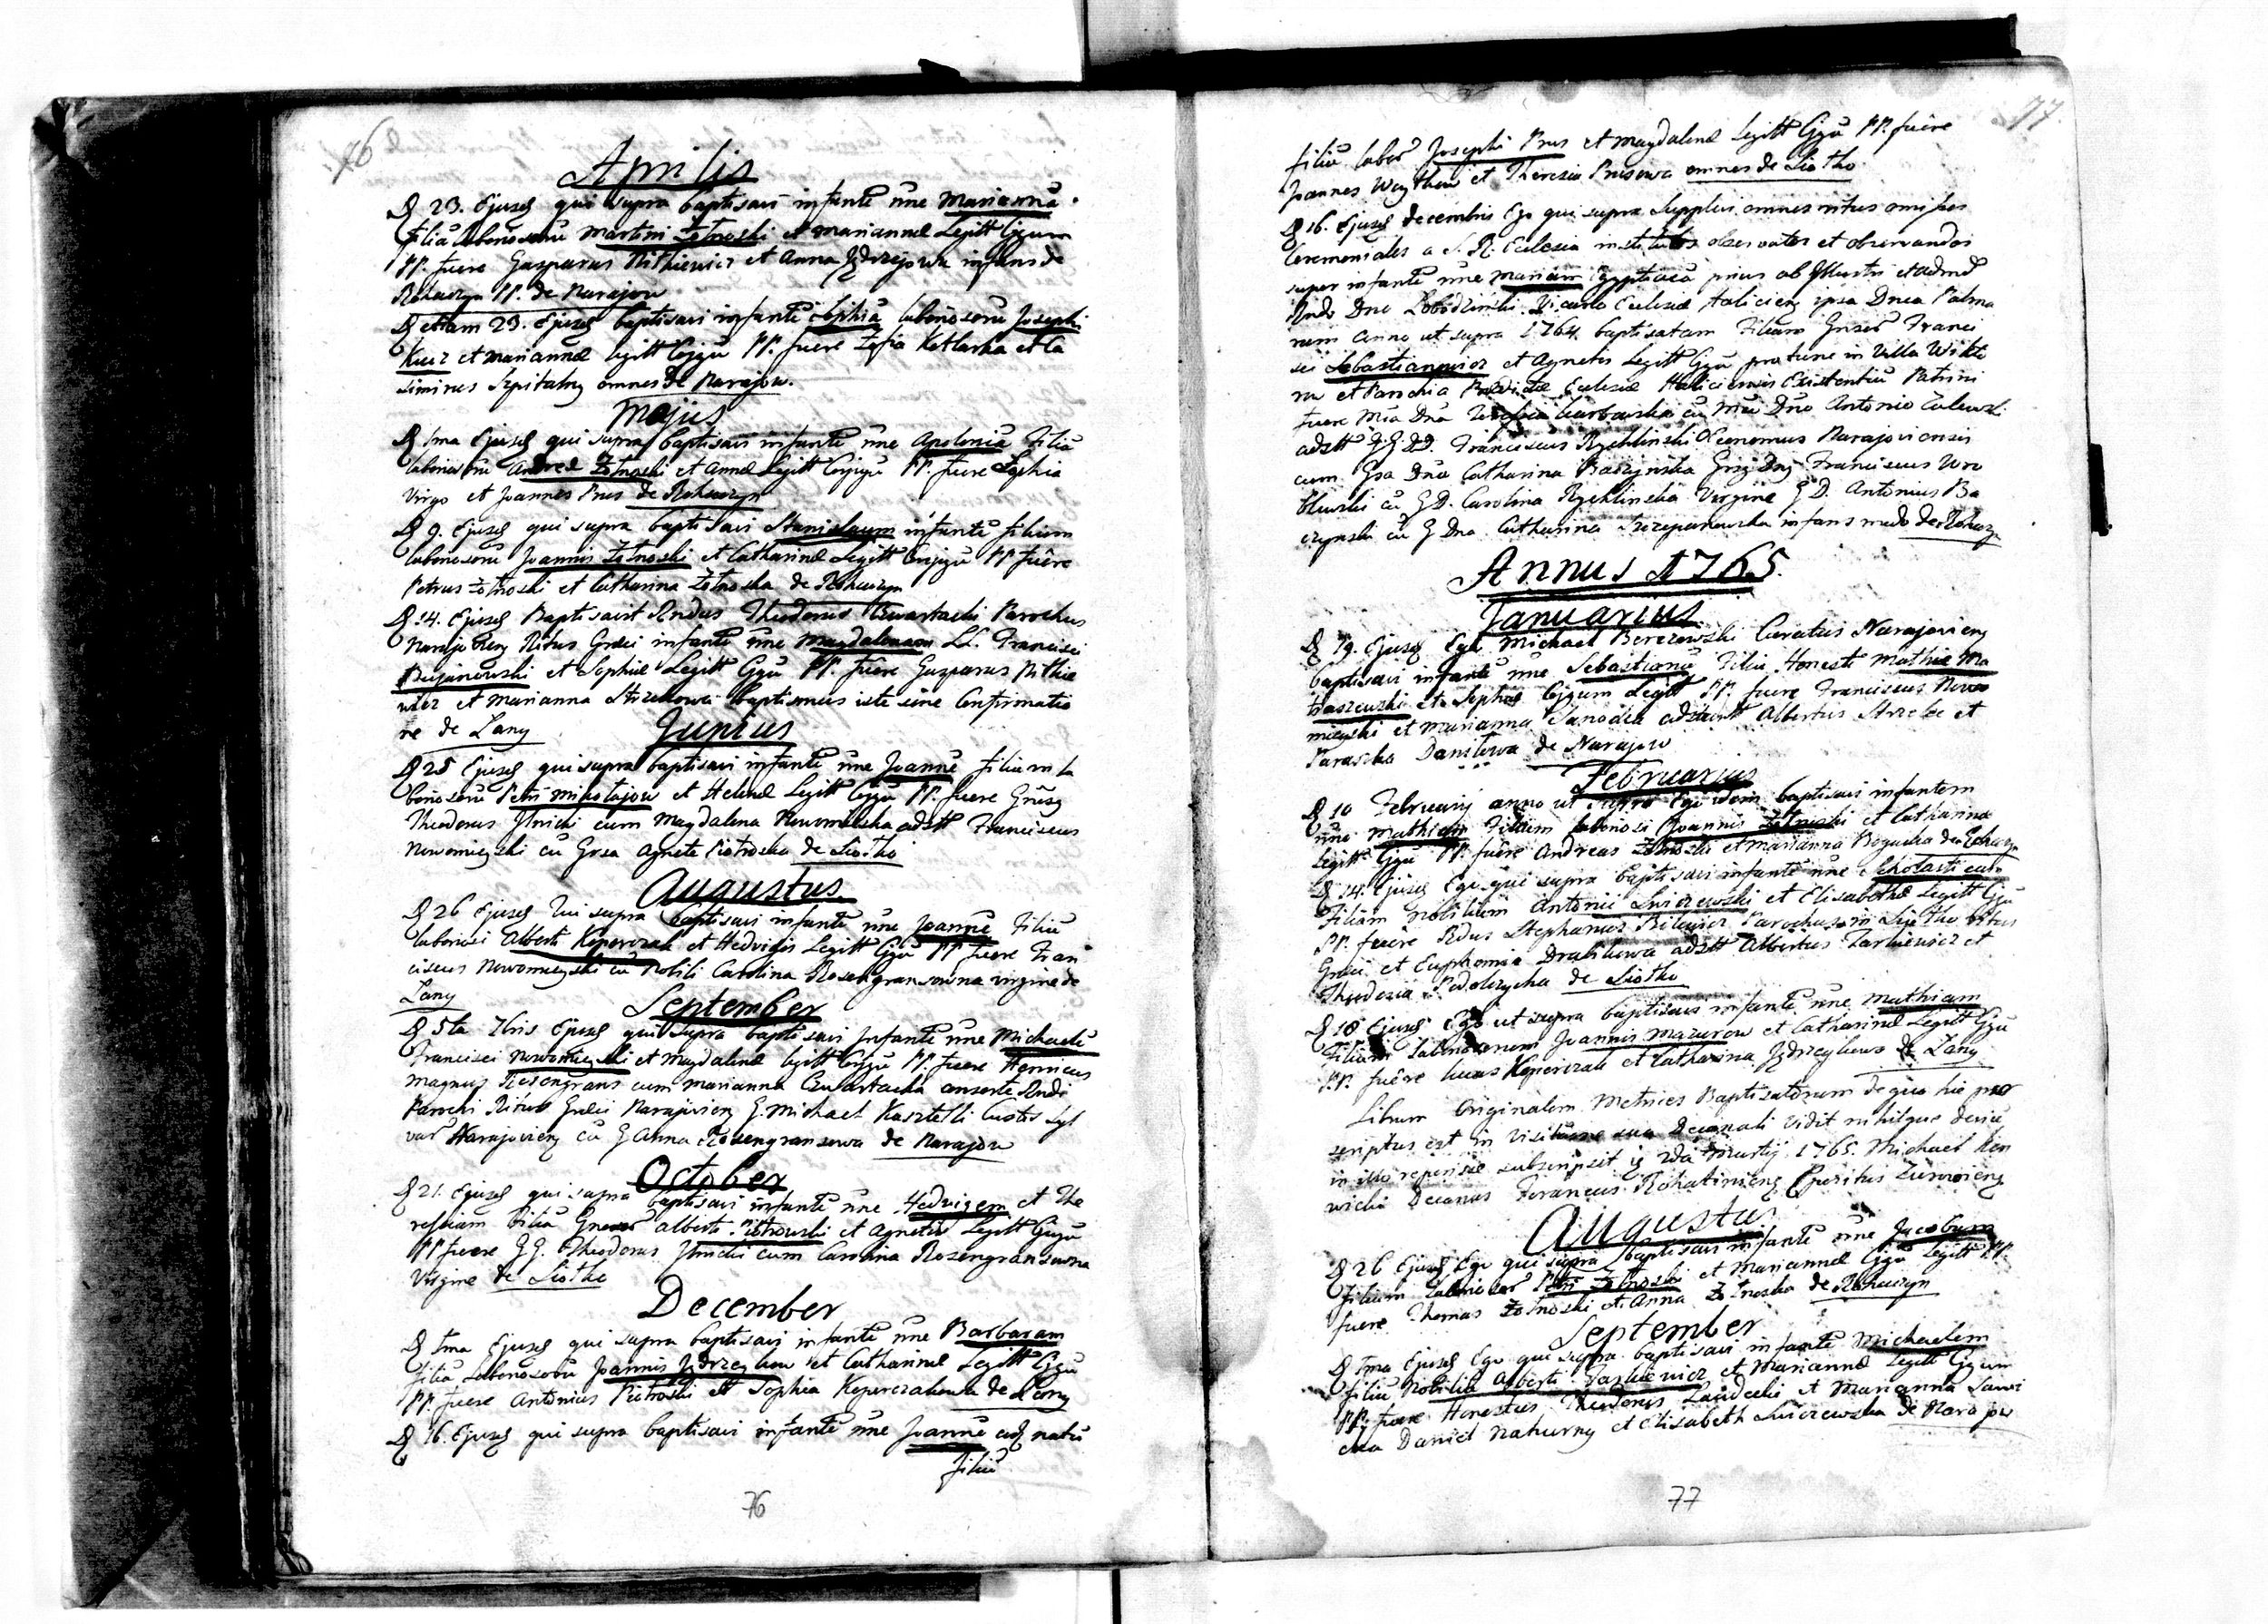 76
Aprilis
D 23. Ejusd qui supra baptisavi infantē nne Mariannā
filiā laboriosorū Martini Żołnoski et Mariannæ Legitt Cjgum
PP. fuere Gasparus Nithiewicz et Anna Jędrzejowa infans de
Rohaczyn PP. de Narajow
D etiam 23. Ejusd baptisavi infantē Sophiā laboriosorū Josephi
Kucz et Mariannæ legitt Cojgū PP. fuere Zofia Kotlarka et Ca
simirus Szpitalny omnes de Narajow.
Majus
D 1ma Ejusd qui supra baptisavi infantē nne Apoloniā Filiā
laboriosorū Andreæ Żołnoski et Annæ Legitt Conjugū PP. fuere Sophia
Virgo et Joannes Prus de Rohaczyn
D 9. Ejusd qui supra baptisavi Stanislaum infantē filium
laboriosorū Joannis Żołnoski et Catharinæ Legitt Conjugū PP fuēre
Petrus Żołnoski et Catharina Żołnoska de Rohaczyn
D 14. Ejusd Baptisavit Rndus Theodorus Czwartacki Parochus
Narajovieng Ritus Græci infantē nne Magdalenam LL. Francisci
Bujanowski et Sophiæ Legitt Cjgū PP. fuēre Gasparus Nithie
wicz et Marianna Strzelkowa baptismus iste sine Confirmatio
ne de Lany
Junius
D 25 Ejusd qui supra baptisavi infantē nne Joannē filium la
boriosorū Petri Mikołajow et Helenæ Legitt Cjgū PP. fuere Gnrsg
Theodorus Ilnicki cum Magdalena Nowomieska adstt Franciscus
Nowomiejski cū Grsa Agneta Piotroska de Liotko
Augustus
D 26 Ejusd Qui supra baptisavi infantē nne Joannē Filiū
laboriosi Alberti Keperczak et Hedvigis Legitt Cjgū PP fuere Fran
ciscus Nowomiejski cū Nobili Carolina Rosengransowna virgine de
Lany
September
D 5ta 7bris Ejusd qui supra baptisavi Infantē nne Michaelē
Francisci Nowomiejski et Magdalenæ legitt Conjgū PP. fuere Henricus
Magnus Rosengrans cum Marianna Czwartacka consorte Rndi
Parochi Ritus Græci Narajovieng G. Michael Kasztelli Custos Syl
var Narajovieng cū G Anna Rosengransowa de Narajow
October
D 21. Ejusd qui supra baptisavi infantē nne Hedvigem et The
resiam filiā Gneros Alberti Piotrowski et Agnetis Legitt Cjugū
PP fuere GG. Theodorus Ilnicki cum Carolina Rosengransowna
Virgine de Liotko
December
D 1ma Ejusd qui supra baptisavi infantē nne Barbaram
filiā Laboriosorū Joannis Jędrzejkow et Catharinæ Legitt Cjgū
PP. fuere Antonius Piotroski et Sophia Keperczakowa de Lany
D 16. Ejusd qui supra baptisavi infantē nne Joannē eodz natū
filiū
76
77
filiū labor Josephi Prus et Magdalenæ Legitt Cjgū PP. fuēre
Joannes Woythow et Theresia Prusowa omnes de Liotko
D 16. Ejusd decembris Ego qui supra Supplevi omnes ritus omissos
Ceremoniales a S. R. Eclesia institutos observatos et observandos
super infantē nne Mariam Egyptiacā prius ab Illustri et Admd
Rndo Dno Łobodzinski Vicario Eclesiæ Halicieng ipsa Dnca Palma
rum anno ut supra 1764 baptisatam Filiam Gneros Franci
sci Sebastianowicz et Agnetis Legitt Cjgū pro tunc in Villa Wikto
row et Parochia Prædictæ Eclesiæ Haliciensis Existentiū Patrini
fuere Mca Dna Theresia Garbowska cū Mco Dno Antonio Zalewski
adstt GG. DD. Franciscus Rychlinski Œconomus Narajoviensis
cum Gsa Dna Catharina Baczynska Gnsg Dng Franciscus Wro
blewski cū G D. Carolina Rychlinska Virgine G D. Antonius Ba
czynski cū G Dna Catharina Szczepanowska infans modo de Rohaczyn
Annus 1765.
Januarius
D 19. Ejusd Ego Michael Berezowski Curatus Narajovieng
baptisavi infantē nne Sebastianū Filiū Honesti Mathiæ Ma
traszewski et Sophiæ Cjgum Legitt PP. fuere Franciscus Nowo
mieyski et Marianna Sanocka adstant Albertus Strzelec et
Paraska Danilowa de Narajow
Februarius
D 10 Februarij anno ut supra Ego idem baptisavi infantem
nne Mathiam Filium laboriosi Joannis Żołnoski et Catharinæ
Legitt Cjgū PP. fuēre Andreas Żołnoski et Marianna Bogucka de Rohaczyn
D 14. Ejusd Ego qui supra baptisavi infantē nne Scholasticam
Filiam Nobilium Antonii Swiczewski et Elisabethæ Legitt Cjgū
PP. fuēre Rdus Stephanus Bilewicz Parochus in Liotko Ritus
Græci et Euphemia Drabikowa adstt Albertus Jarkiewicz et
Theodozia Podolczycha de Liotko
D 18 Ejusd Ego ut supra baptisavi infantē nne Mathiam
Filium Laboriosorum Joannis Mazurow et Catharinæ Legitt Cjgū
PP. fuēre Lucas Keperczak et Catharina Jędrzeykowa de Lany
Librum Originalem Metrices Baptisatorum de quo hic præ
scriptus est in Visitatione sua Decanali vidit nihilque devii
in illo reperisse subscripsit ig die Martij 1765. Michael Ken
wicki Decanus Foraneus Rohatinieng Curatus Zurowieng
Augustus
D 26 Ejusd Ego qui supra baptisavi infantē nne Jacobum
Filium Laborioso Petri Żołnoski et Mariannæ Cjgū Legitt PP.
fuere Thomas Żołnoski et Anna Żołnoska de Rohaczyn
September
D 1ma Ejusd Ego qui supra baptisavi infantē Michaelem
filiū Nobilis Alberti Jarkiewicz et Mariannæ Legitt Cjgum
PP. fuere Honestus Theodorus Laudecki et Marianna Sawi
cka Daniel Nahurny et Elisabeth Swiczewska de Narajow
77